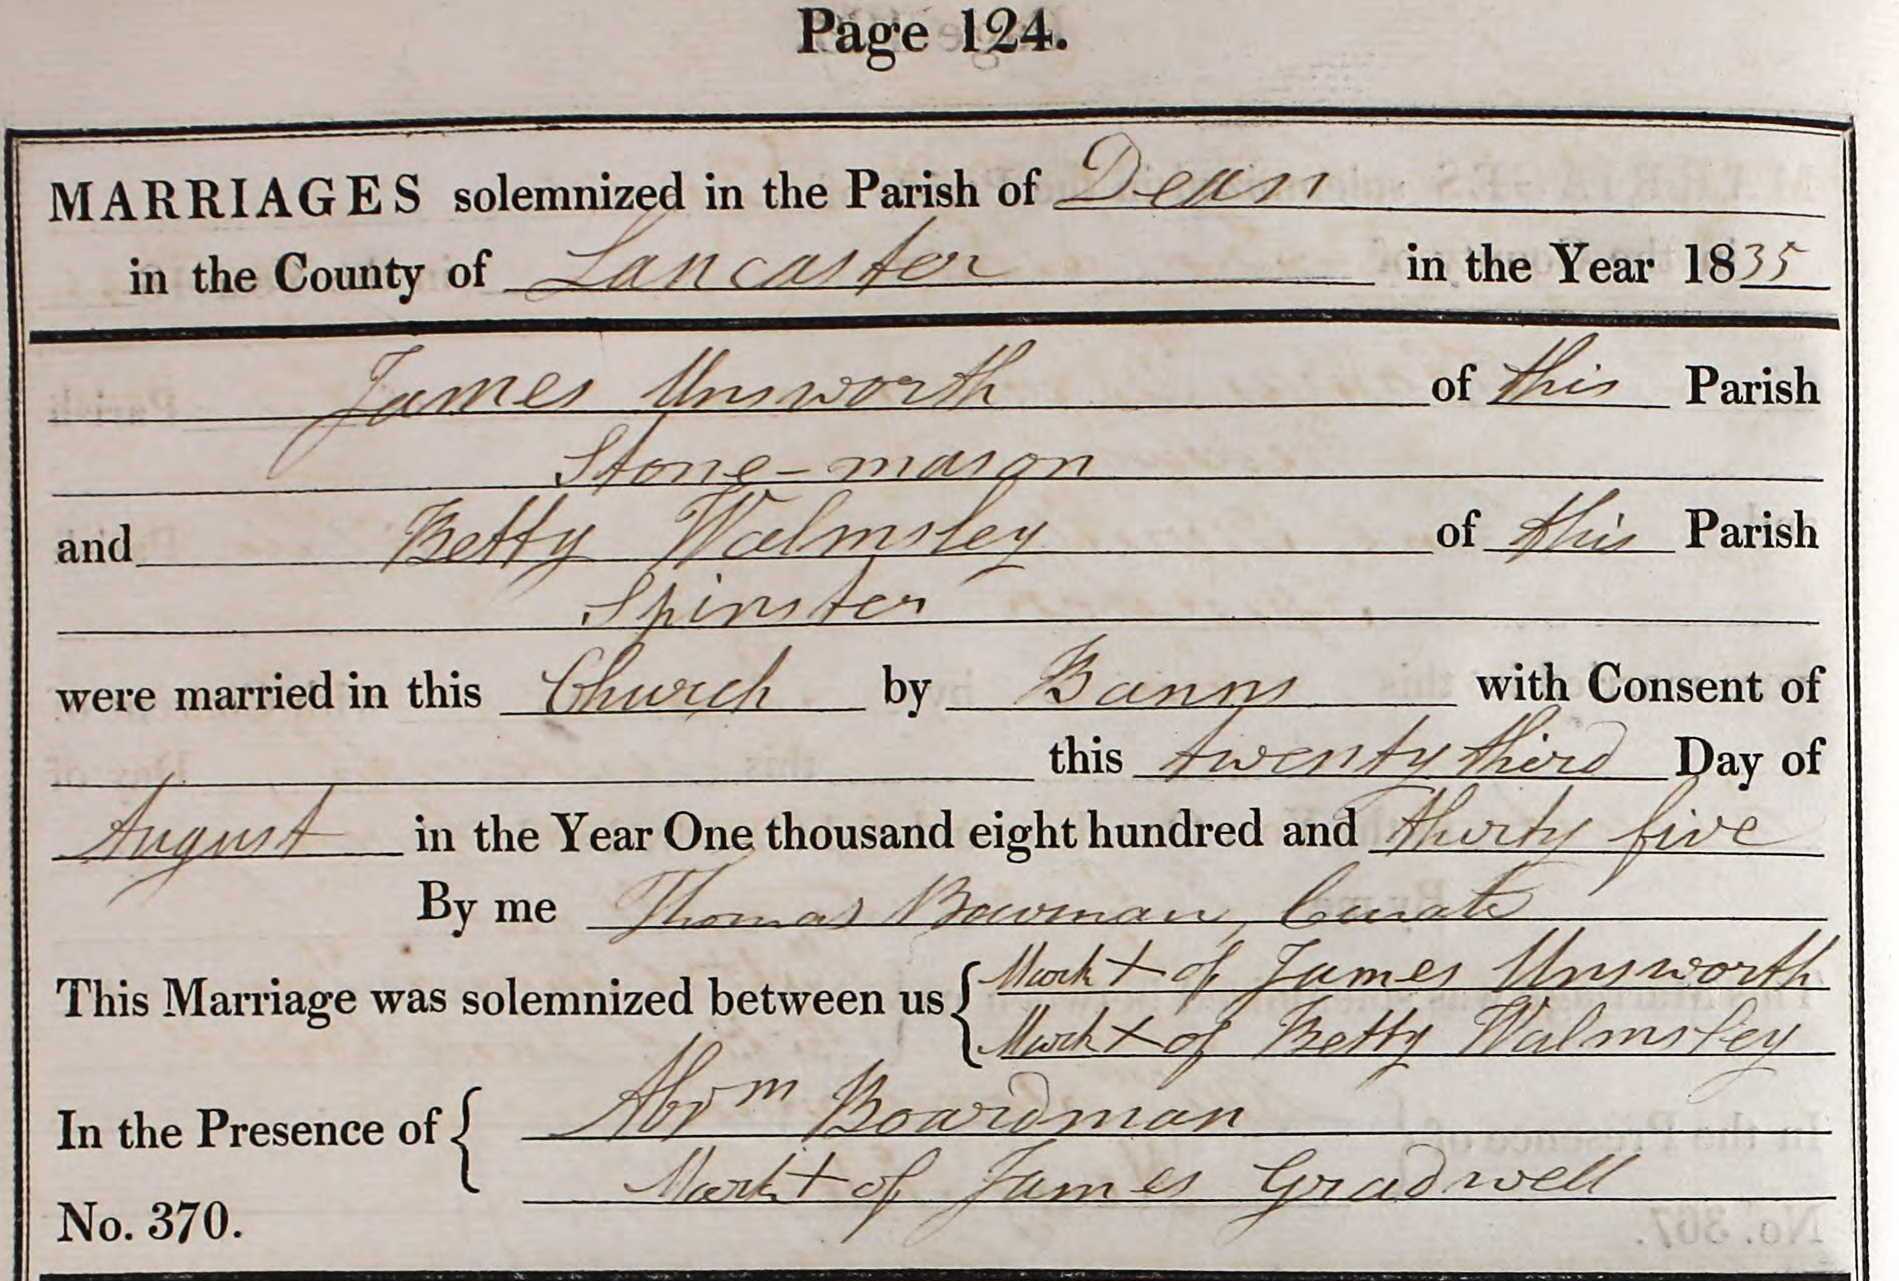 Page 124.
MARRIAGES solemnized in the Parish of Dean
in the County of Lancaster in the Year 1835
James Unsworth of this Parish
Stone-mason
and Betty Walmsley of this Parish
Spinster
were married in this Church by Banns with Consent of
this twenty third Day of
August in the Year One thousand eight hundred and thirty five
By me Thomas Bowman, Curate
This Marriage was solemnized between us { Mark + of James Unsworth
Mark + of Betty Walmsley
In the Presence of { Abrm Boardman
Mark + of James Gradwell
No. 370.